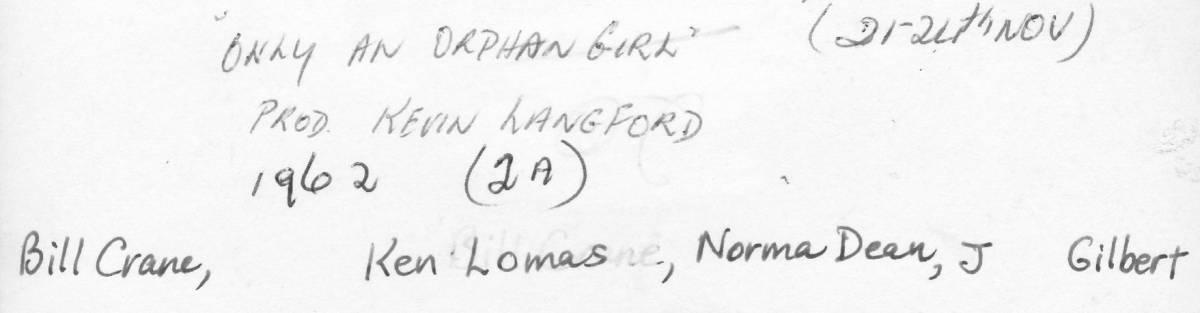 "ONLY AN ORPHAN GIRL" (21-24th NOV)
PROD. KEVIN LANGFORD
1962 (2A)
Bill Crane, Ken Lomas, Norma Dean, J Gilbert